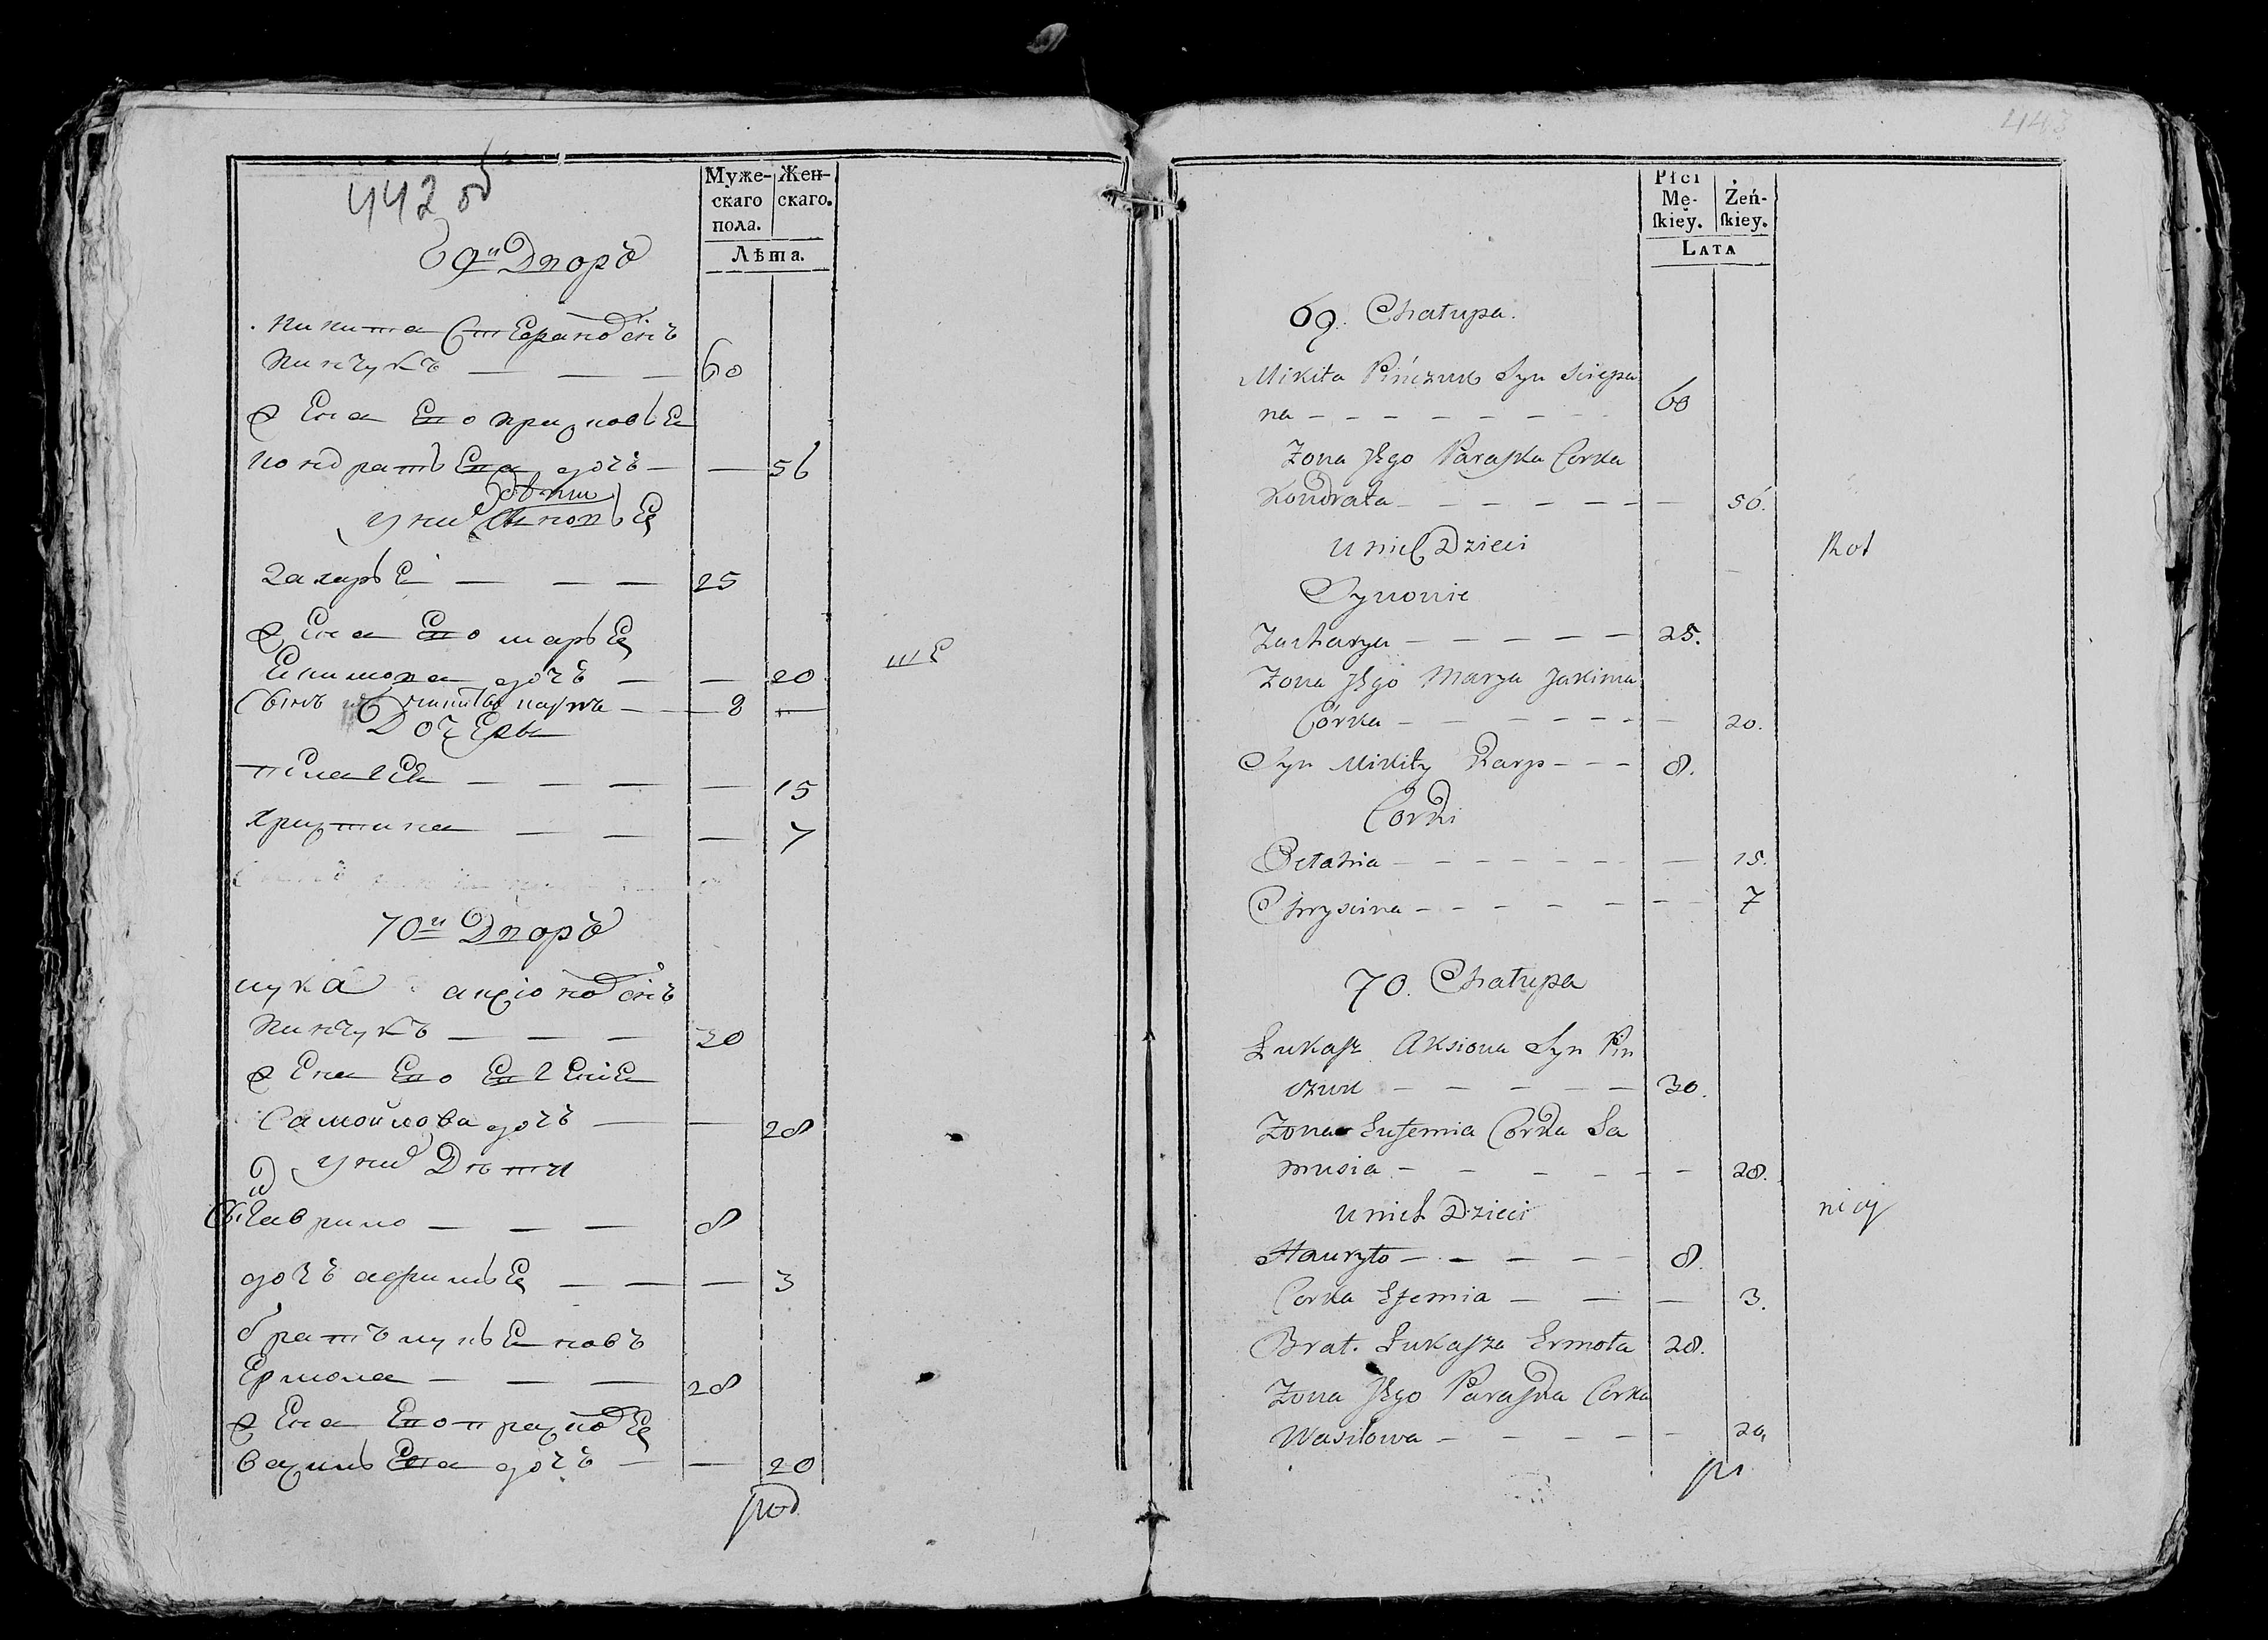 442 об
Муже-
скаго
пола.
Жен-
скаго.
Лѣта.
69й Дворъ
никита Степановъ сынъ
пинчукъ — — — 60
жена Ево празковья
кондратьева дочь — — 56
у них дѣти
Сыновья
захарья — — — 25
жена Ево марья
Екимова дочь — — 20
Сынъ никиты карпъ — 8 —
Дочери
пелагея — — — — 15
хрузтина — — — 7
70й Дворъ
лука аксіоновъ сынъ
пинчукъ — — — 30
жена Ево Евгенія
Самойлова дочь — — 28
у них Дѣти
Сынъ гаврило — — — 8
дочь афимья — — — 3
братъ лукьяновъ
Ермола — — — 28
жена Ево празковья
васильева дочь — — 20
443
Płci
Mę-
ſkiey.
Żeń-
ſkiey.
LATA
69. Chałupa.
Mikita Pińczuk Syn Sciepa
na — — — — — — 60
Żona Jego Paraska Corka
Kondrata — — — — — — 56.
u nich Dzieci
Rot
Synowie
Zacharya — — — — — 25.
Żona Jego Marya Jakima
Córka — — — — — — 20.
Syn Mikity Karp — — — 8.
Corki
Pełahia — — — — — — 15.
Chryscina — — — — — — 7
70. Chałupa
Łukasz Aksiona Syn Pin
czuk — — — — — 30.
Żona Eufemia Córka Sa
musia — — — — — — 28.
u nich Dzieci
Hauryło — — — — — 8.
Corka Efemia — — — 3.
Brat. Łukasza Ermoła 28.
Żona Jego Paraska Corka
Wasilowa — — — — — 20,